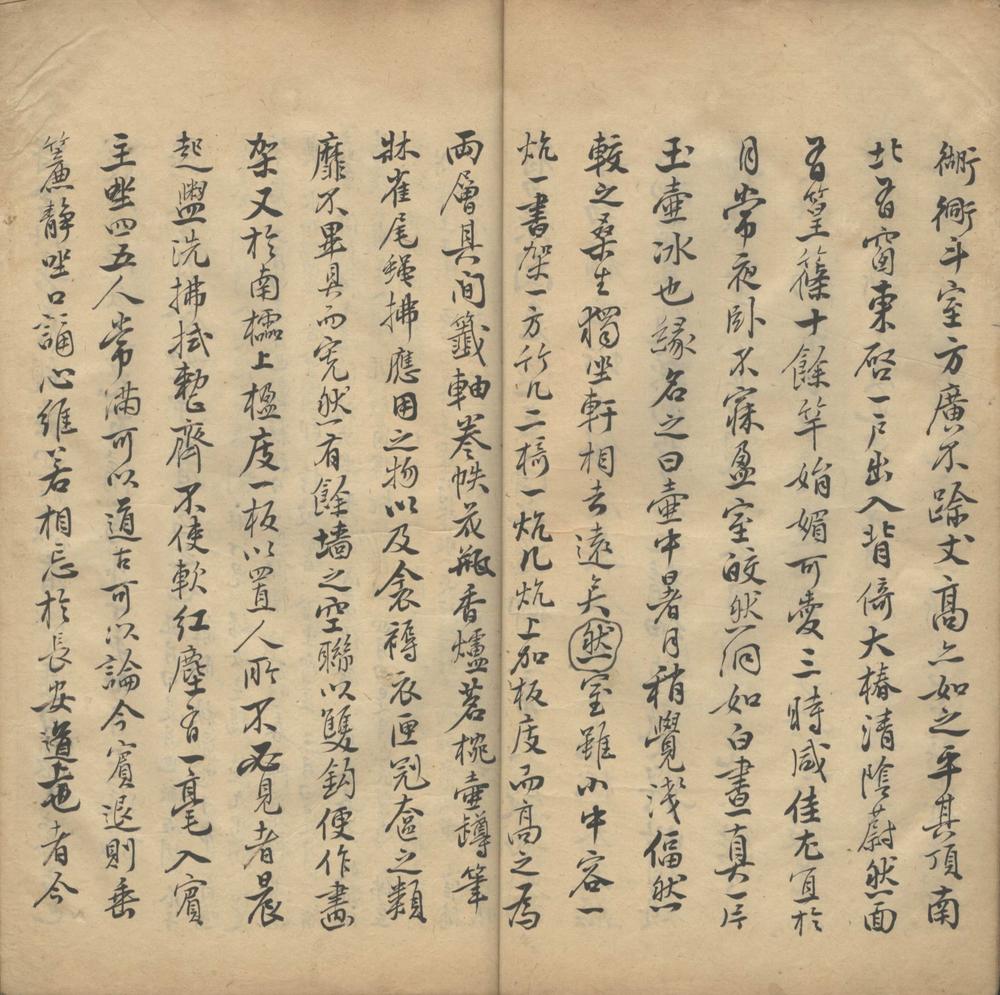 衚衕斗室方廣不踰丈高亦如之平其頂南
北有窗東啓一戶出入背倚大椿清陰蔚然面
有篁篠十餘竿娟媚可愛三時咸佳尤宜於
月常夜卧不寐盈室皎然洞如白晝真一片
玉壺冰也緣名之曰壺中暑月稍覺淺偪然
較之桑生獨坐軒相去遠矣然室雖小中容一
炕一書架一方竹几二椅一炕几炕上加板庋而高之爲
兩層具間籤軸卷帙花瓶香爐茗椀壺罇筆
牀雀尾蠅拂應用之物以及衾褥衣匣冠奩之類
靡不畢具而寬然有餘墻之空聯以雙鈎便作畫
架又於南櫺上楹庋一板以置人所不必見者晨
起盥洗拂拭整齊不使軟紅塵有一毫入賓
主坐四五人常滿可以道古可以論今賓退則垂
簾靜坐口誦心維若相忘於長安道上也者今